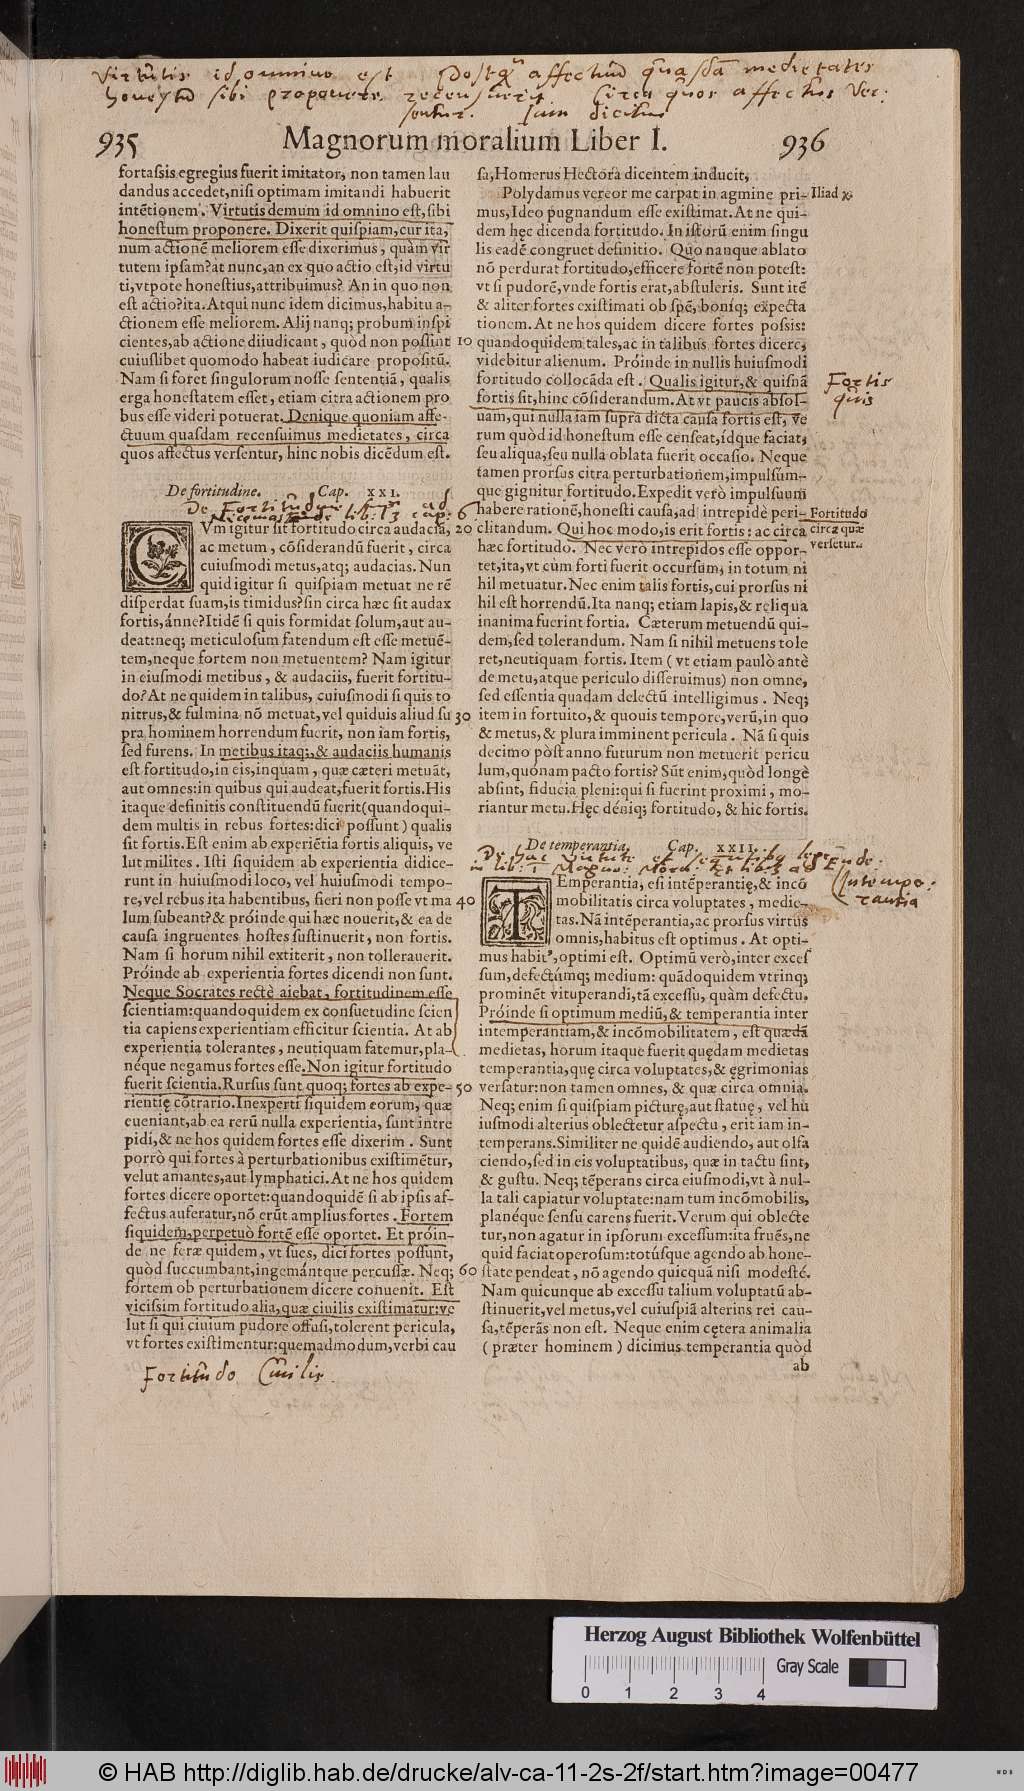 Virtutis id omnino est Postq̃ affectuũ quasdã medietates
honestũ sibi proponere. recensuerit circa quos affectus ver:
sentur. Jam dicitur
935 Magnorum moralium Liber I. 936
fortassis egregius fuerit imitator, non tamen lau
dandus accedet, nisi optimam imitandi habuerit
intẽtionem. Virtutis demum id omnino est, sibi
honestum proponere. Dixerit quispiam, cur ita,
num actionẽ meliorem esse dixerimus, quàm vir
tutem ipsam? at nunc, an ex quo actio est, id virtu
ti, vtpote honestius, attribuimus? An in quo non
est actio? ita. Atqui nunc idem dicimus, habitu a-
ctionem esse meliorem. Alij nanq; probum inspi
cientes, ab actione diiudicant, quòd non possint 10
cuiuslibet quomodo habeat iudicare propositũ.
Nam si foret singulorum nosse sententiã, qualis
erga honestatem esset, etiam citra actionem pro
bus esse videri potuerat. Denique quoniam affe-
ctuum quasdam recensuimus medietates, circa
quos affectus versentur, hinc nobis dicẽdum est.
De fortitudine. Cap. XXI.
De Fortitudine
CVm igitur sit fortitudo circa audacia, 20
ac metum, cõsiderandũ fuerit, circa
cuiusmodi metus, atq; audacias. Nun
quid igitur si quispiam metuat ne rẽ
disperdat suam, is timidus? sin circa hæc sit audax
fortis, ánne? Itidẽ si quis formidat solum, aut au-
deat: neq; meticulosum fatendum est esse metuẽ-
tem, neque fortem non metuentem? Nam igitur
in eiusmodi metibus, & audaciis, fuerit fortitu-
do? At ne quidem in talibus, cuiusmodi si quis to
nitrus, & fulmina nõ metuat, vel quiduis aliud su 30
pra hominem horrendum fuerit, non iam fortis,
sed furens. In metibus itaq;, & audaciis humanis
est fortitudo, in eis, inquam, quæ cæteri metuãt,
aut omnes: in quibus qui audeat, fuerit fortis. His
itaque definitis constituendũ fuerit (quandoqui-
dem multis in rebus fortes: dici possunt) qualis
sit fortis. Est enim ab experiẽtia fortis aliquis, ve
lut milites. Isti siquidem ab experientia didice-
runt in huiusmodi loco, vel huiusmodi tempo-
re, vel rebus ita habentibus, fieri non posse vt ma 40
lum subeant? & próinde qui hæc nouerit, & ea de
causa ingruentes hostes sustinuerit, non fortis.
Nam si horum nihil extiterit, non tollerauerit.
Próinde ab experientia fortes dicendi non sunt.
Neque Socrates rectè aiebat, fortitudinem esse
scientiam: quandoquidem ex consuetudine scien
tia capiens experientiam efficitur scientia. At ab
experientia tolerantes, neutiquam fatemur, pla-
néque negamus fortes esse. Non igitur fortitudo
fuerit scientia. Rursus sunt quoq; fortes ab expe- 50
rientię cõtrario. Inexperti siquidem eorum, quæ
eueniant, ab ea rerũ nulla experientia, sunt intre
pidi, & ne hos quidem fortes esse dixerim. Sunt
porrò qui fortes à perturbationibus existimẽtur,
velut amantes, aut lymphatici. At ne hos quidem
fortes dicere oportet: quandoquidẽ si ab ipsis af-
fectus auferatur, nõ erũt amplius fortes. Fortem
siquidem, perpetuò fortẽ esse oportet. Et próin-
de ne feræ quidem, vt sues, dici fortes possunt,
quòd succumbant, ingemántque percussæ. Neq; 60
fortem ob perturbationem dicere conuenit. Est
vicissim fortitudo alia, quæ ciuilis existimatur: ve
lut si qui ciuium pudore offusi, tolerent pericula,
vt fortes existimentur: quemadmodum, verbi cau
Fortitudo Ciuilis.
sa, Homerus Hectora dicentem inducit,
Polydamus vereor me carpat in agmine pri- Iliad χ.
mus, Ideo pugnandum esse existimat. At ne qui-
dem hęc dicenda fortitudo. In istorũ enim singu
lis eadẽ congruet definitio. Quo nanque ablato
nõ perdurat fortitudo, efficere fortẽ non potest:
vt si pudorẽ, vnde fortis erat, abstuleris. Sunt itẽ
& aliter fortes existimati ob spẽ, boniq; expecta
tionem. At ne hos quidem dicere fortes possis:
quandoquidem tales, ac in talibus fortes dicere,
videbitur alienum. Próinde in nullis huiusmodi
fortitudo collocãda est. Qualis igitur, & quisnã
fortis sit, hinc cõsiderandum. At vt paucis absol-
uam, qui nulla iam supra dicta causa fortis est, ve
rum quòd id honestum esse censeat, idque faciat,
seu aliqua, seu nulla oblata fuerit occasio. Neque
tamen prorsus citra perturbationem, impulsúm-
que gignitur fortitudo. Expedit verò impulsuum
habere rationẽ, honesti causa, ad intrepidè peri-
clitandum. Qui hoc modo, is erit fortis: ac circa
hæc fortitudo. Nec verò intrepidos esse oppor-
tet, ita, vt cùm forti fuerit occursum, in totum ni
hil metuatur. Nec enim talis fortis, cui prorsus ni
hil est horrendũ. Ita nanq; etiam lapis, & reliqua
inanima fuerint fortia. Cæterum metuendũ qui-
dem, sed tolerandum. Nam si nihil metuens tole
ret, neutiquam fortis. Item (vt etiam paulò antè
de metu, atque periculo disseruimus) non omne,
sed essentia quadam delectũ intelligimus. Neq;
item in fortuito, & quouis tempore, verũ, in quo
& metus, & plura imminent pericula. Nã si quis
decimo pòst anno futurum non metuerit pericu
lum, quónam pacto fortis? Sũt enim, quòd longè
absint, fiducia pleni: qui si fuerint proximi, mo-
riantur metu. Hęc déniq; fortitudo, & hic fortis.
Fortis
quis
Fortitudo
circæ quæ
versetur.
De temperantia. Cap. XXII.
Intempe:
rantia
TEmperantia, est intẽperantię, & incõ
mobilitatis circa voluptates, medie-
tas. Nã intẽperantia, ac prorsus virtus
omnis, habitus est optimus. At opti-
mus habitꝰ, optimi est. Optimũ verò, inter exces
sum, defectúmq; medium: quãdoquidem vtrinq;
prominẽt vituperandi, tã excessu, quàm defectu.
Próinde si optimum mediũ, & temperantia inter
intemperantiam, & incõmobilitatem, est quædã
medietas, horum itaque fuerit quędam medietas
temperantia, quę circa voluptates, & ęgrimonias
versatur: non tamen omnes, & quæ circa omnia.
Neq; enim si quispiam picturę, aut statuę, vel hu
iusmodi alterius oblectetur aspectu, erit iam in-
temperans. Similiter ne quidẽ audiendo, aut olfa
ciendo, sed in eis voluptatibus, quæ in tactu sint,
& gustu. Neq; tẽperans circa eiusmodi, vt à nul-
la tali capiatur voluptate: nam tum incõmobilis,
planéque sensu carens fuerit. Verum qui oblecte
tur, non agatur in ipsorum excessum: ita fruẽs, ne
quid faciat operosum: totúsque agendo ab hone-
state pendeat, nõ agendo quicquã nisi modestè.
Nam quicunque ab excessu talium voluptatũ ab-
stinuerit, vel metus, vel cuiuspiã alterius rei cau-
sa, tẽperãs non est. Neque enim cętera animalia
(præter hominem) dicimus temperantia quòd
ab
Herzog August Bibliothek Wolfenbüttel
Gray Scale
0 1 2 3 4
© HAB http://diglib.hab.de/drucke/alv-ca-11-2s-2f/start.htm?image=00477